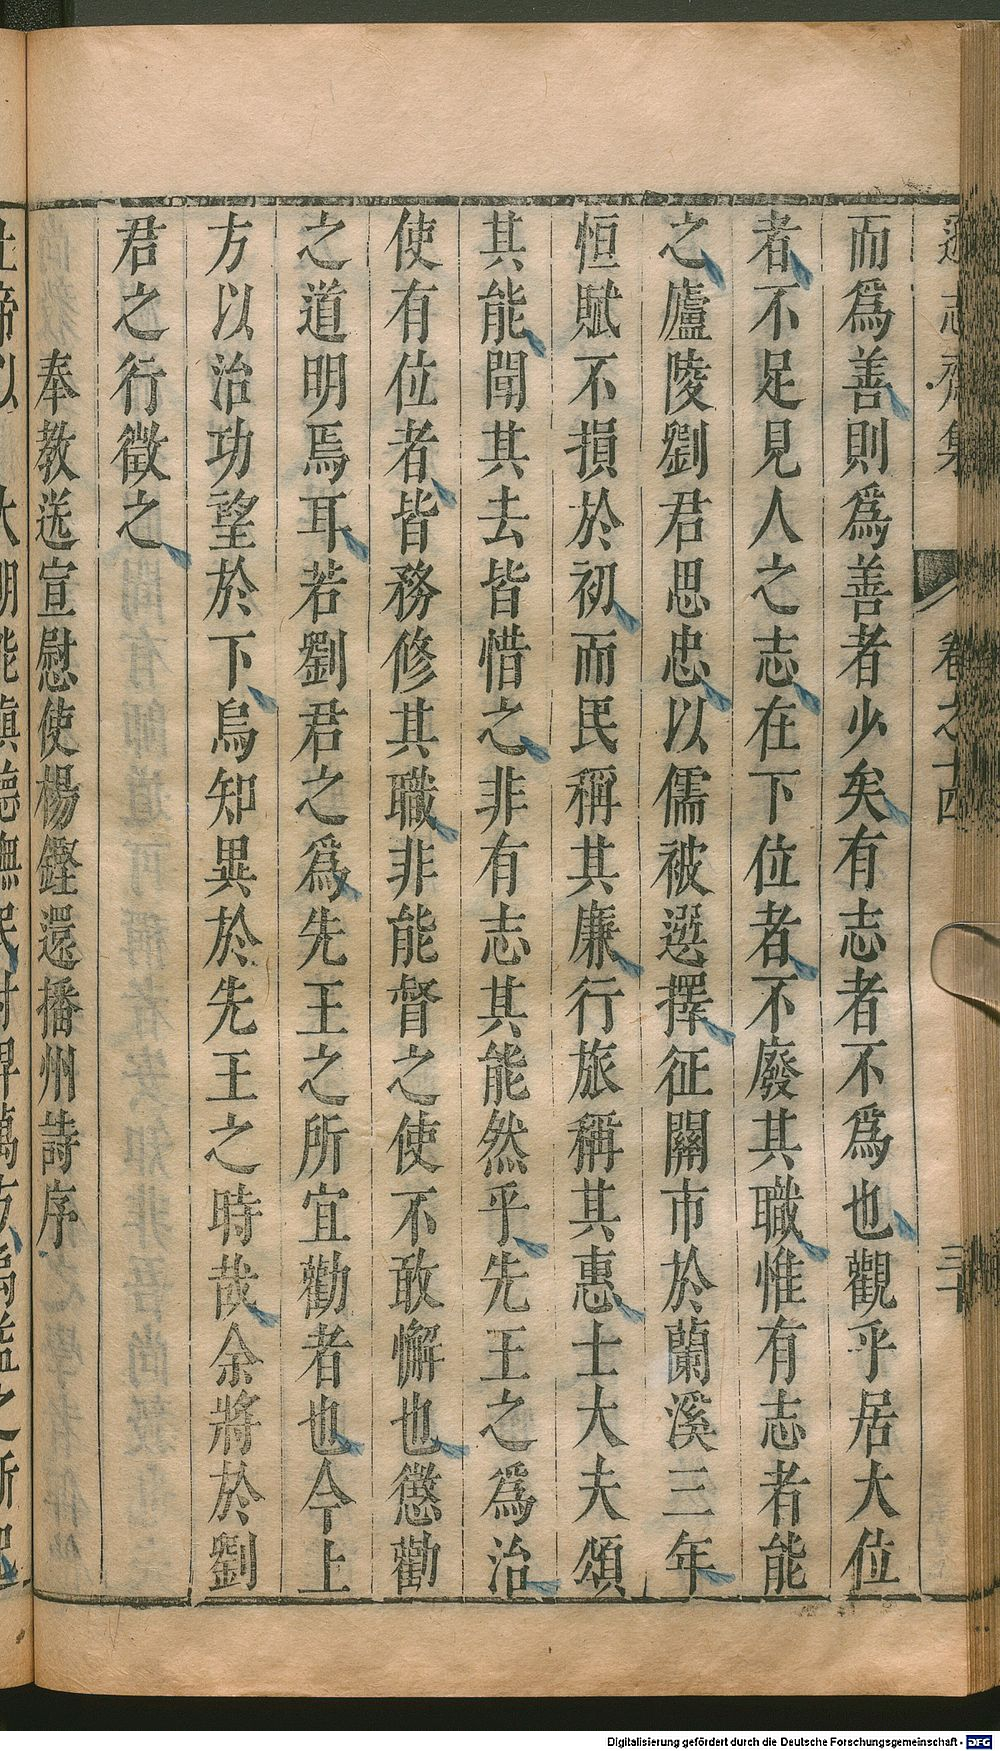 遜志齋集 卷之十四 三十
而爲善則爲善者少矣有志者不爲也觀乎居大位
者不足見人之志在下位者不廢其職惟有志者能
之廬陵劉君思忠以儒被選擇征關市於蘭溪三年
恒賦不損於初而民稱其廉行旅稱其惠士大夫頌
其能聞其去皆惜之非有志其能然乎先王之爲治
使有位者皆務修其職非能督之使不敢懈也懲勸
之道明焉耳若劉君之爲先王之所宜勸者也今上
方以治功望於下烏知異於先王之時哉余將於劉
君之行徵之
奉教送宣慰使楊鏗還播州詩序
Digitalisierung gefördert durch die Deutsche Forschungsgemeinschaft - DFG